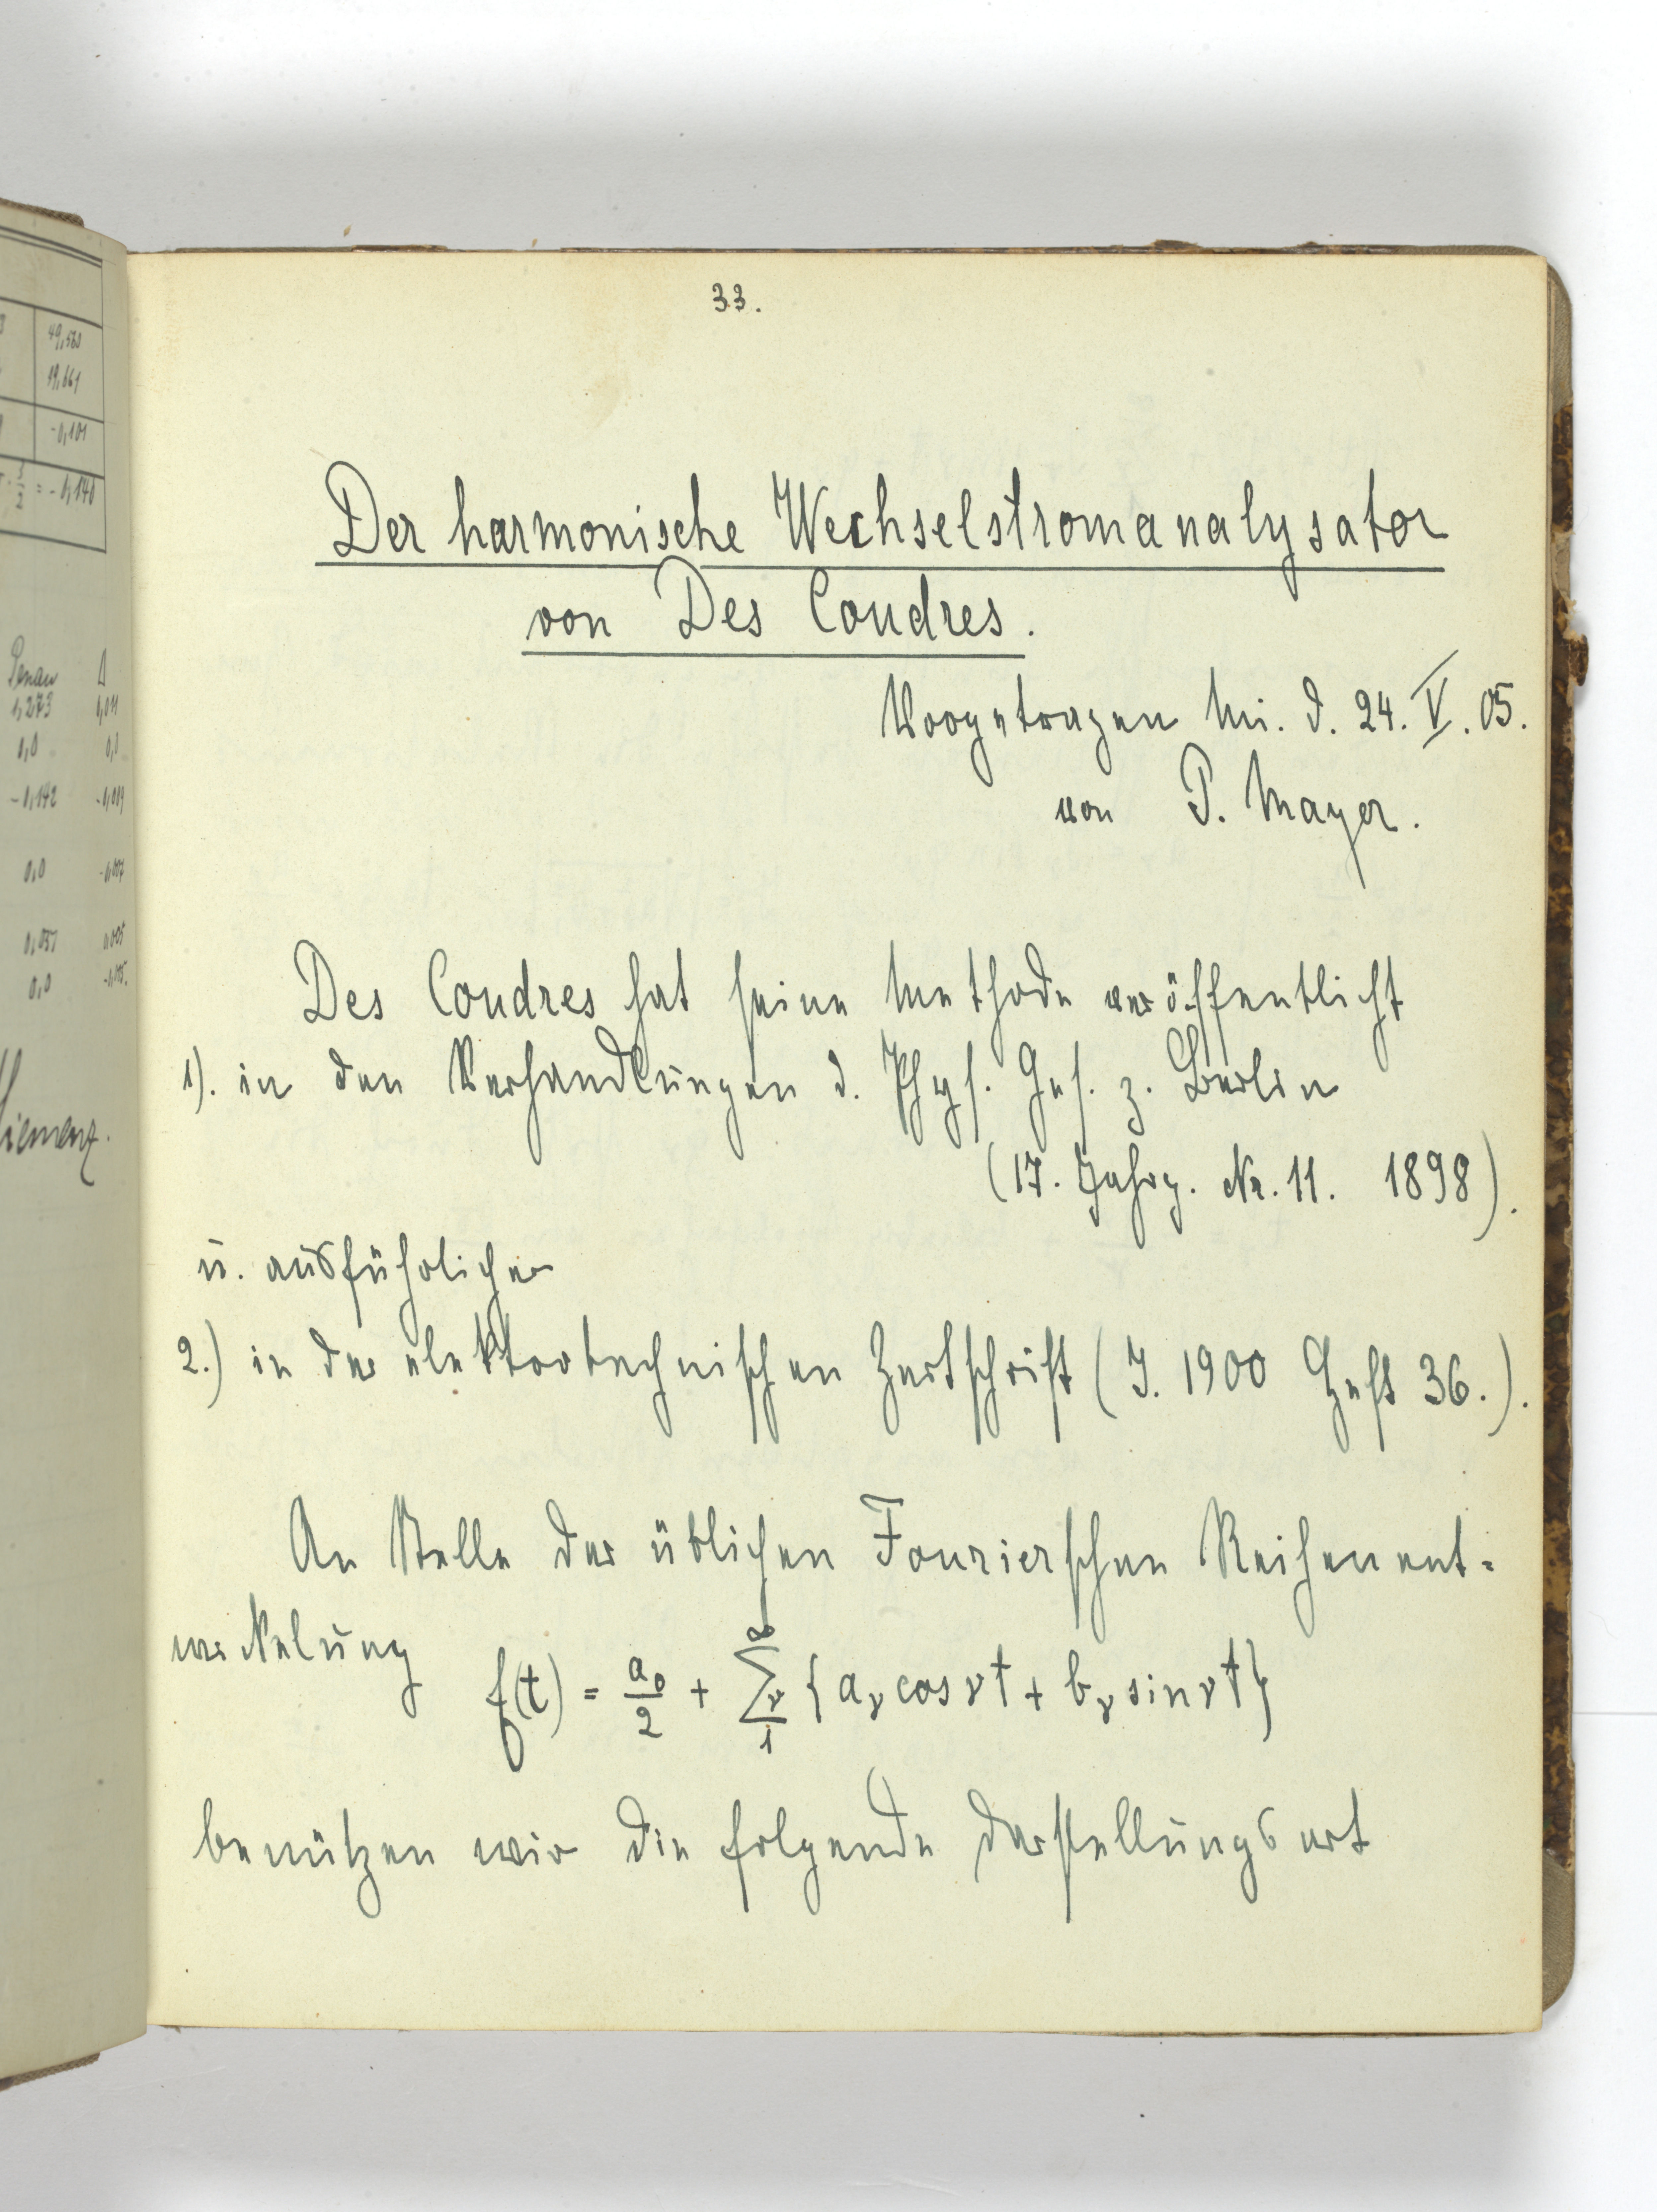 49,580
19,661
-0,101
1/2 = -0,140
Genau Δ
1,273 0,011
0,0 0,0
-0,142 -0,019
0,0
0,0
33.
Der harmonische Wechselstromanalysator
von Des Coudres.
Vorgetragen Mi. d. 24. V. 05.
von P. Mayer.
Des Coudres hat seine Methode veröffentlicht
1). in den Verhandlungen d. Phys. Ges. z. Berlin
(17. Jahrg. Nr. 11. 1898).
u. ausführlicher
2.) in der elektrotechnischen Zeitschrift (J. 1900 Heft 36.).
An Stelle der üblichen Fourierschen Reihenent=
wickelung f(t) = a₀/2 + ∞∑ν1 {aᵥ cos νt + bᵥ sin νt}
benützen wir die folgende Darstellungsart